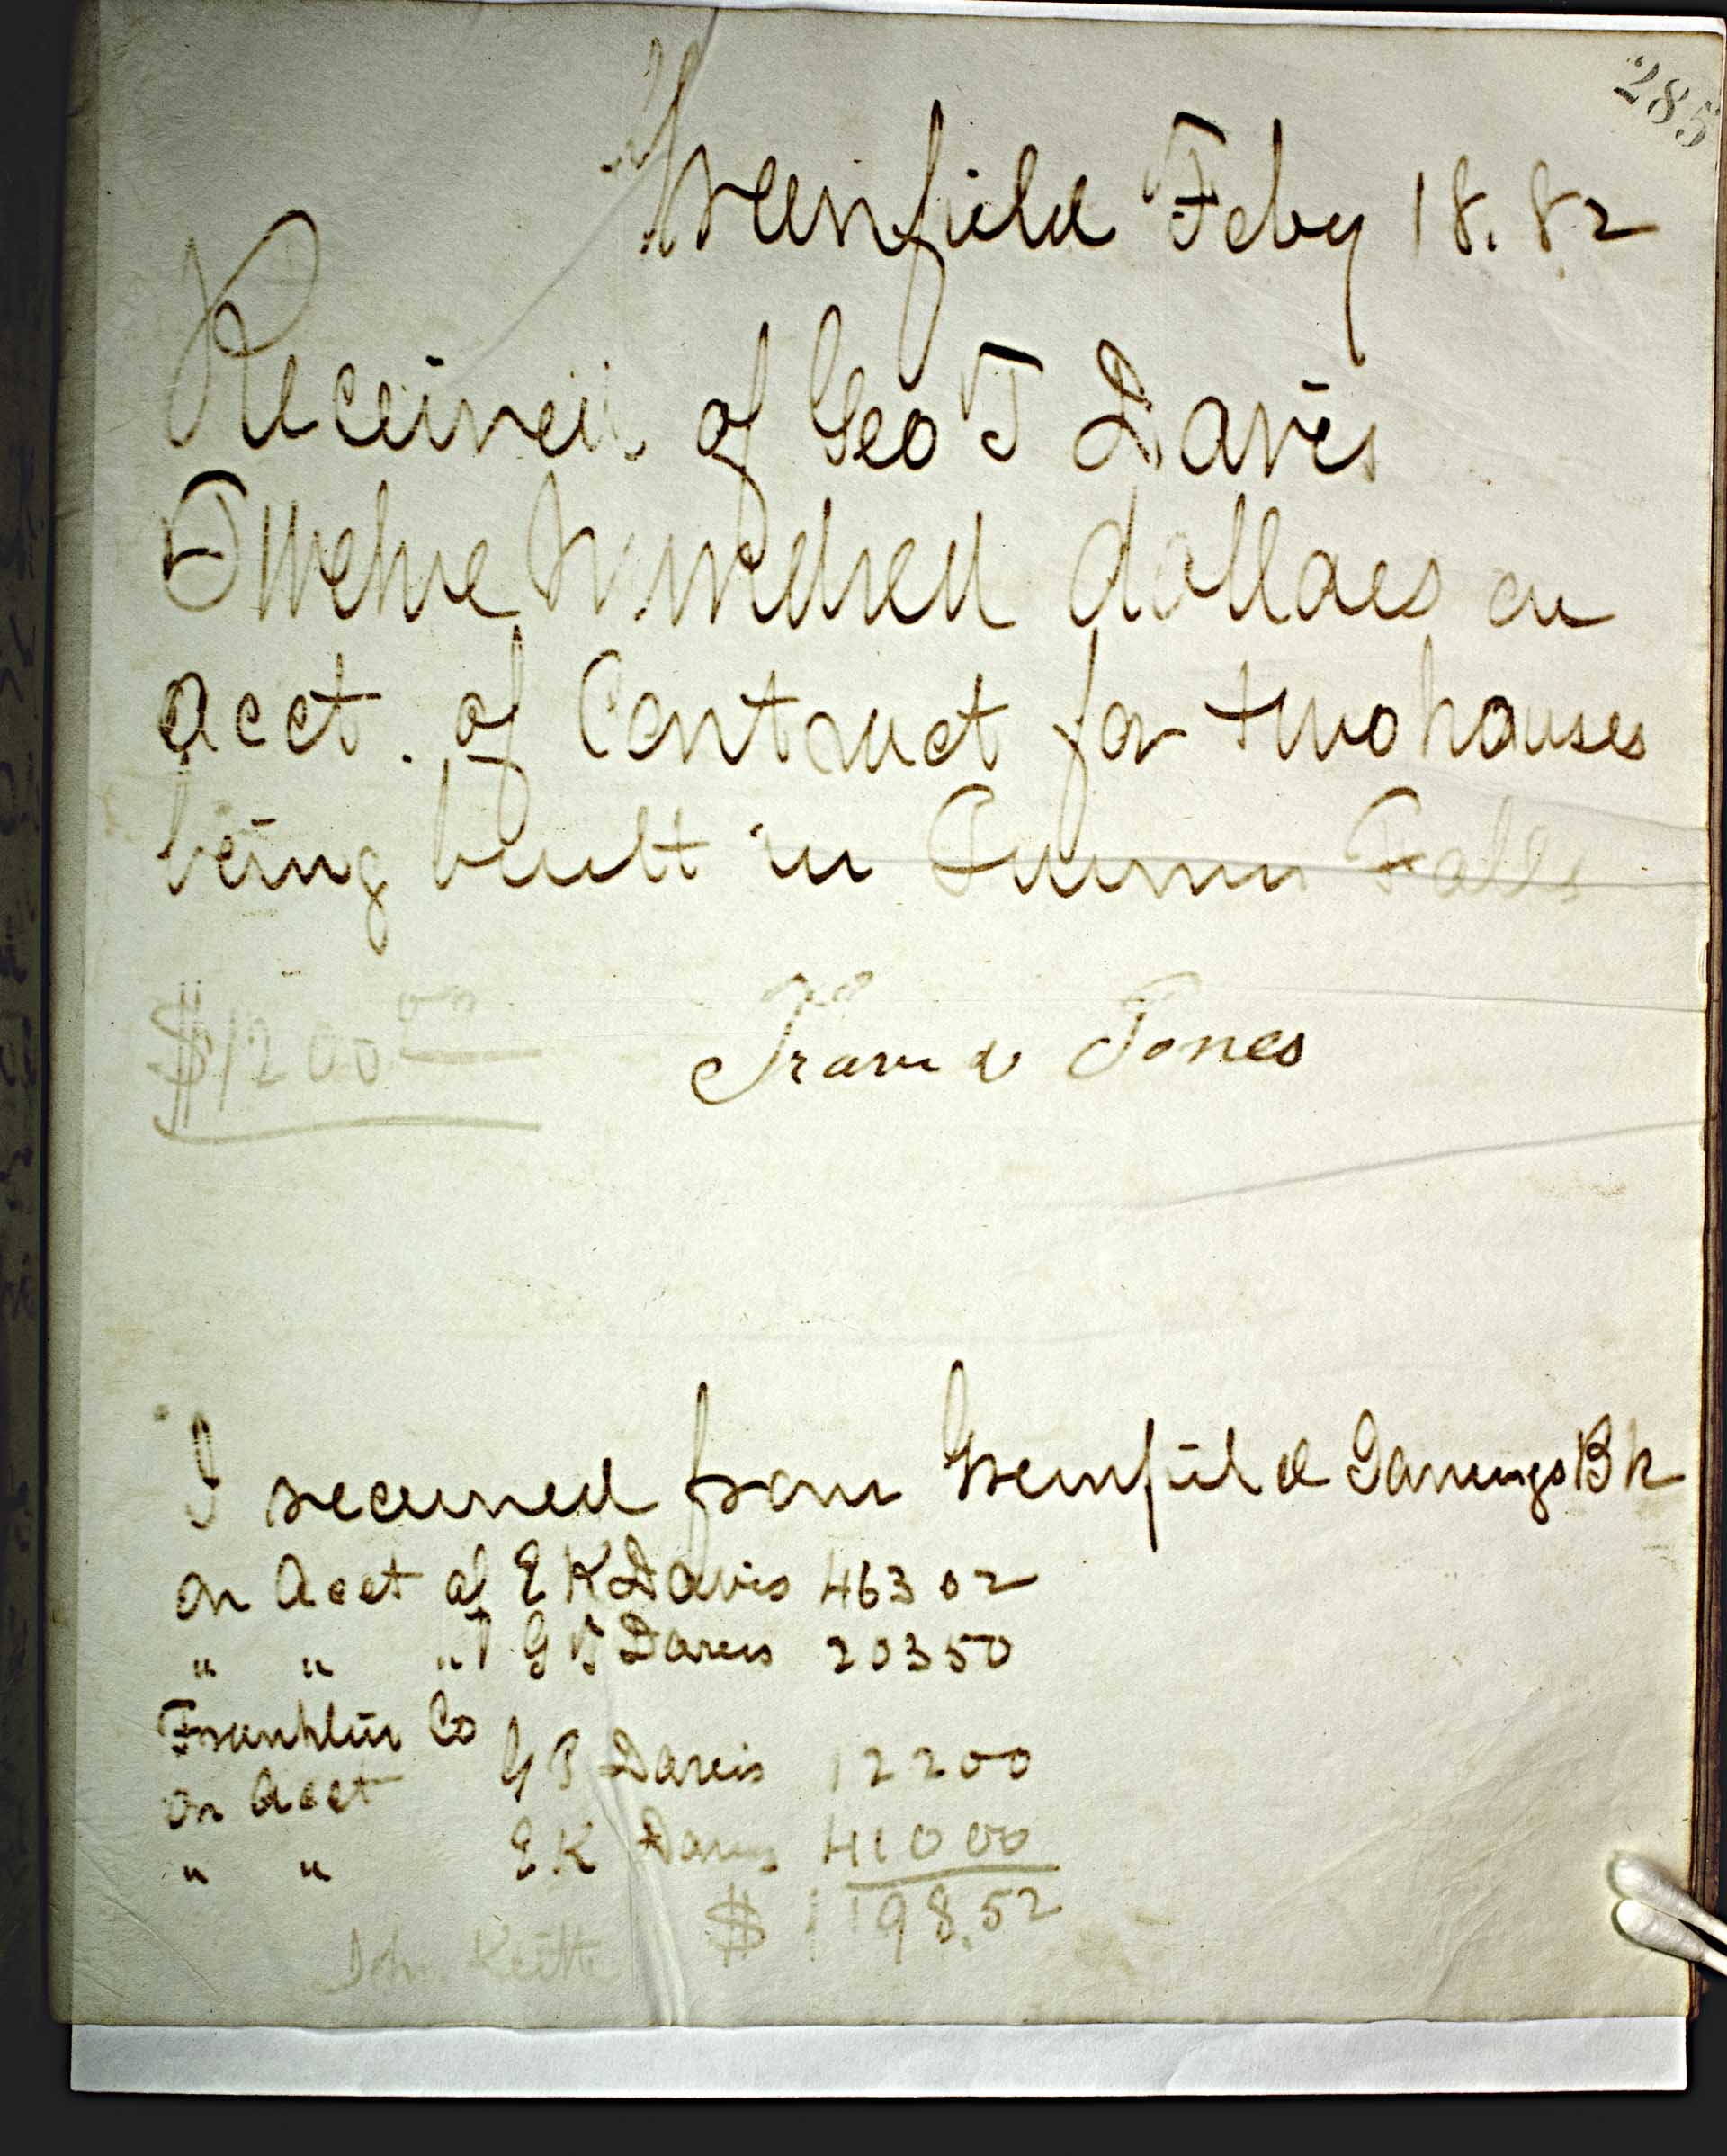 285
Greenfield Feby 18. 82
Received of Geo T Davis
Twelve hundred dollars on
acct. of Contract for two houses
being built in Turners Falls
$1200 00 Jones
I received from Greenfield Savings Bk
on Acct of E K Davis 463 02
" " " G T Davis 203 50
Franklin Co
on Acct G T Davis 122 00
" " E K Davis 410 00
$ 1198.52
John Keith